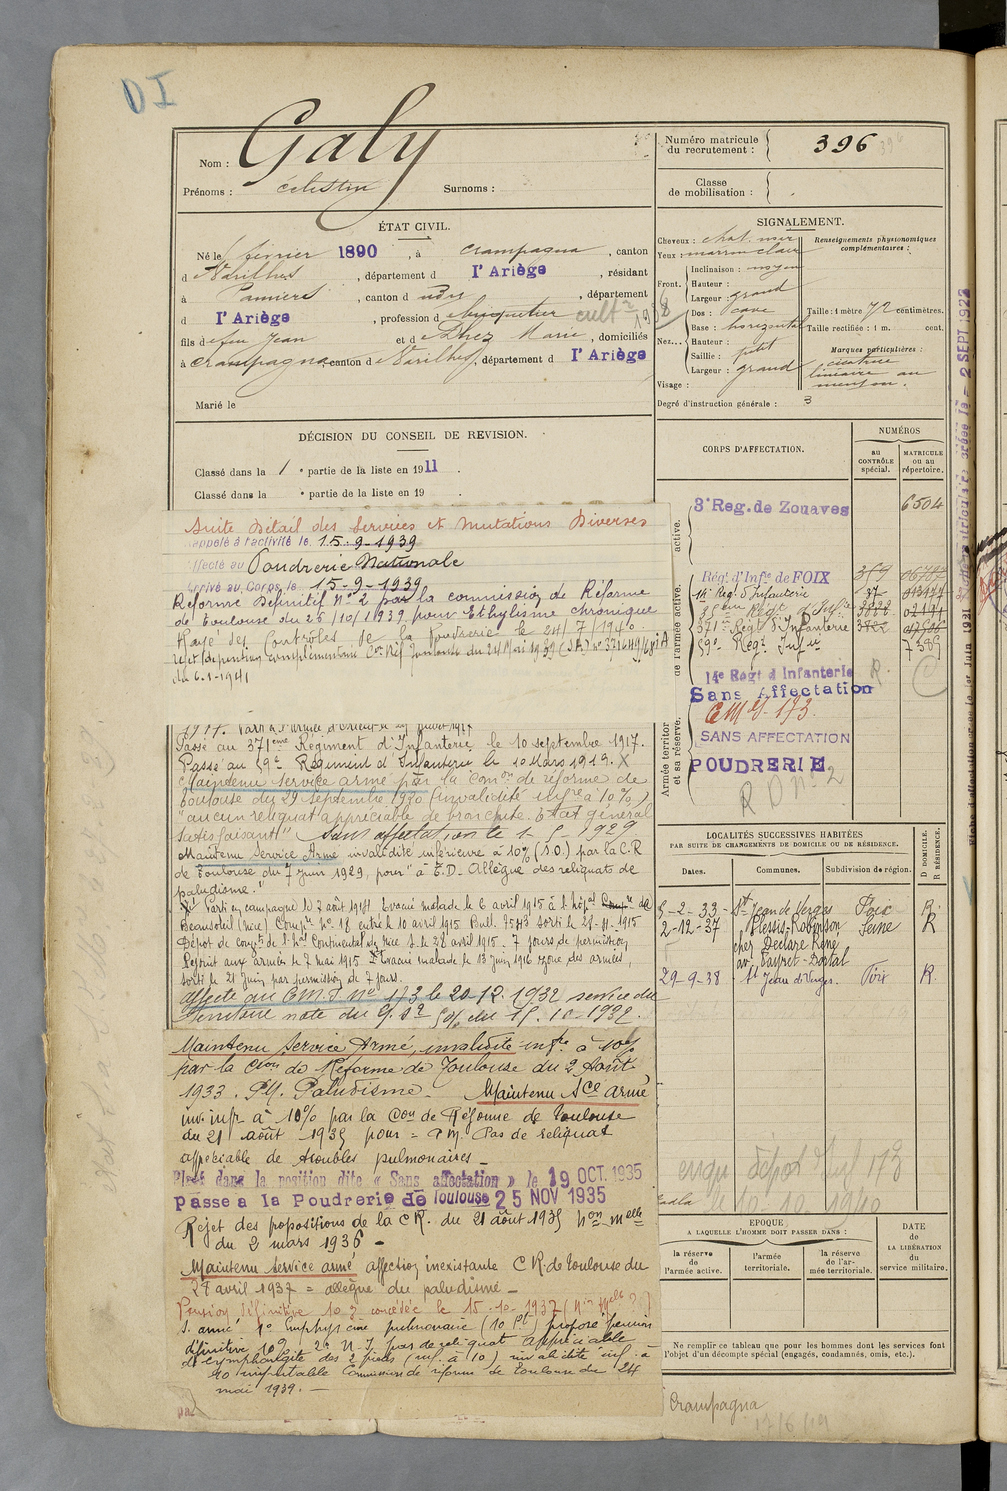 DI
Nom : Galy
Prénoms : célestin Surnoms :
Numéro matricule du recrutement : 396
Classe de mobilisation :
ÉTAT CIVIL.
Né le février 1890, à crampagna, canton
d e Varilhes, département d l'Ariège, résidant
à Pamiers, canton d udes, département
d l'Ariège, profession d e briquetier cult
1938
fils d e feu Jean et d e Dhez Marie, domiciliés
à crampagna, canton de Varilhes, département d l'Ariège
Marié le
SIGNALEMENT.
Cheveux : chat. noir
Yeux : marron clair
Renseignements physionomiques complémentaires :
Front. Inclinaison : moyen
Hauteur :
Largeur : grand
Nez... Dos : cave
Base : horizontal
Hauteur :
Saillie : petit
Largeur : grand
Taille : 1 mètre 72 centimètres.
Taille rectifiée : 1 m. cent.
Marques particulières : cicatrice
linéaire au
menton.
Visage :
Degré d'instruction générale : 3
DÉCISION DU CONSEIL DE REVISION.
Classé dans la 1 e partie de la liste en 1911.
Classé dans la e partie de la liste en 19 .
Suite Détail des Services et Mutations Diverses
appelé à l'activité le 15-9-1939
ffecté au Poudrerie Nationale
Arrivé au Corps le 15-9-1939
Réformé Définitif N° 2 par la commission de Réforme
de Toulouse du 25/10/1939 pour Ethylisme chronique
Rayé des Contrôles de la poudrerie le 24/7/1940.
du 6-1-1941
1917. Parti à l'armée d'Orient le juillet 1917
Passé au 371ème Régiment d'Infanterie le 10 septembre 1917.
Passé au 59e Régiment d'Infanterie le 10 Mars 1919. X
Maintenu service armé par la Com on de réforme de
Toulouse du 29 Septembre 1920 (invalidité infre à 10%)
"aucun reliquat appréciable de bronchite. Etat général
satisfaisant" Sans affectation le 1-5-1929
Maintenu Service Armé invalidité inférieure à 10% (S.O.) par la C.R
de Toulouse du 7 juin 1929, pour "à E.D- Allègue des reliquats de
paludisme."
Parti en campagne le 3 août 1914 Evacué malade le 6 avril 1915 à l'hôpal de
Beausoleil (nice) Compre N° 18 entré le 10 avril 1915 Bull. 7543 sorti le 28-4-1915
Dépôt de conv ts de l'hal Continental de Nice S. le 28 avril 1915. 7 jours de permission
Reparti aux armées le 7 mai 1915 Evacué malade le 13 juin 1916 zone des armées,
sorti le 21 juin par permission de 7 jours.
affecté au C.M.I N° 173 le 20.12.1932 service du
Territoire note du G. du 15.10.1932.
Maintenu Service Armé, invalidité infre à 10%
par la Cion de Réforme de Toulouse du 2 Août
1933. P.M. Paludisme. Maintenu Sce armé
inv. infr à 10% par la Con de Réforme de Toulouse
du 21 août 1935 pour = P.M. Pas de reliquat
appréciable de troubles pulmonaires_
Placé dans la position dite « Sans affectation » le 19 OCT. 1935
passé à la Poudrerie de Toulouse 25 NOV 1935
Rejet des propositions de la C.R. du 21 août 1935 Non melle
du 2 mars 1936 -
Maintenu service armé affection inexistante C.R. de Toulouse du
27 avril 1937 = allègue du paludisme_
Pension définitive 10% concédée le 15-10-1937
S. armé 1° Emphysème pulmonaire (10 %) proposé pension
définitive 10% 2° N.I. pas de reliquat appréciable
de lymphangite des 2 pieds (inf. à 10) invalidité inf. à
10 imputable Commission de réforme de Toulouse du 24
mai 1939. -
CORPS D'AFFECTATION.
NUMÉROS
au CONTRÔLE spécial.
MATRICULE ou au répertoire.
active.
3e Reg. de Zouaves 6504
de l'armée active.
Régt d'Infie de FOIX 359 06787
14e Régt d'Infanterie 37 013474
35ème Régt d'Infie 02191
371e Régt d'Infanterie
59e Régt Infie 7385
Armée territor et sa réserve.
14e Régt d'Infanterie
Sans Affectation
CMI-173.
SANS AFFECTATION
POUDRERIE
R D N° 2
LOCALITÉS SUCCESSIVES HABITÉES
PAR SUITE DE CHANGEMENTS DE DOMICILE OU DE RÉSIDENCE.
D DOMICILE. R RÉSIDENCE.
Dates. Communes. Subdivision de région.
5-2-33- St Jean de Verges Foix R.
2-12-37 Plessis-Robinson Seine R
chez Declare René
av. Payret-Dortal
29-9-38 - St Jean de Verges. Foix R.
le 10.10.1940
EPOQUE
A LAQUELLE L'HOMME DOIT PASSER DANS :
la réserve de l'armée active.
l'armée territoriale.
la réserve de l'armée territoriale.
DATE de LA LIBÉRATION du service militaire.
Ne remplir ce tableau que pour les hommes dont les services font
l'objet d'un décompte spécial (engagés, condamnés, omis, etc.).
Crampagna
17/6/19